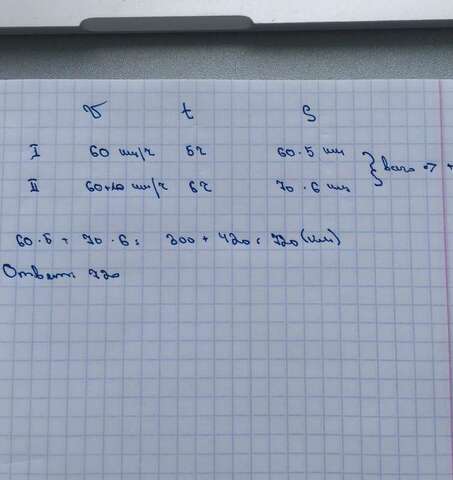 v t S
I 60 км/ч 5ч 60·5 км
II 60+10 км/ч 6ч 70·6 км
60·5 + 70·6 = 300 + 420 = 720 (км)
Ответ: 720